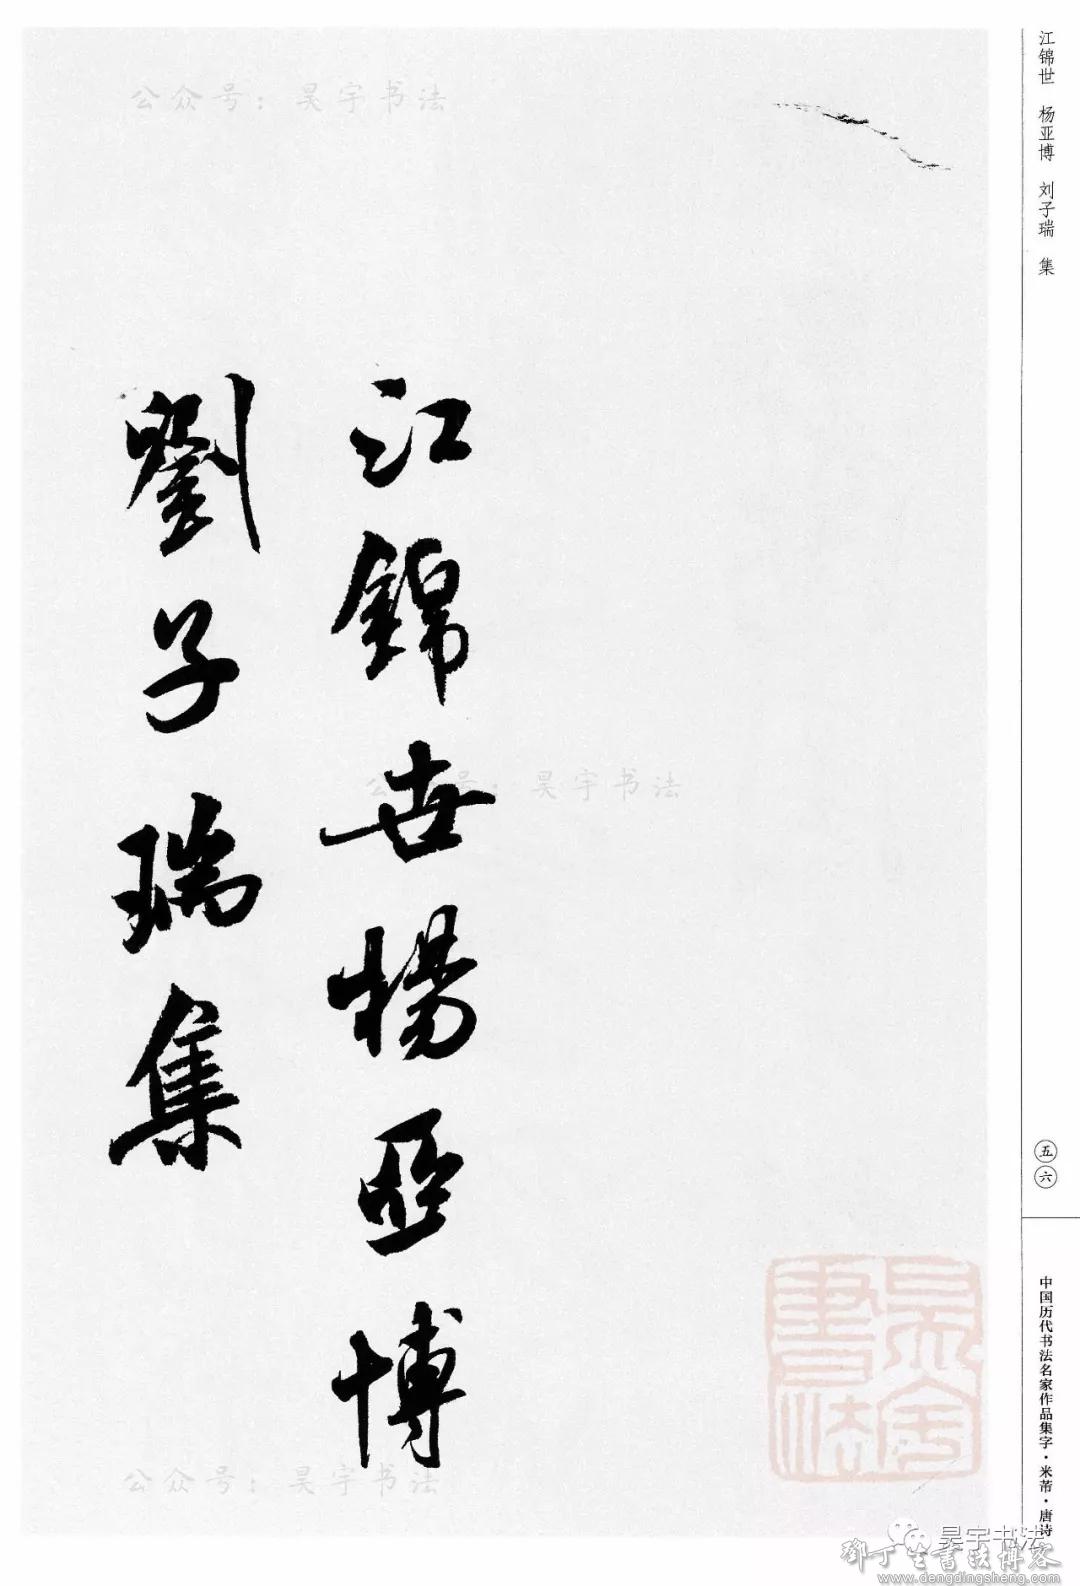 江锦世 杨亚博 刘子瑞 集
五六
中国历代书法名家作品集字·米芾·唐诗
公众号：昊宇书法
江錦世楊亞博
劉子瑞集
公众号：昊宇书法
公众号：昊宇书法
昊宇書法
昊宇书法
鄧丁生書法博客
www.dengdingsheng.com